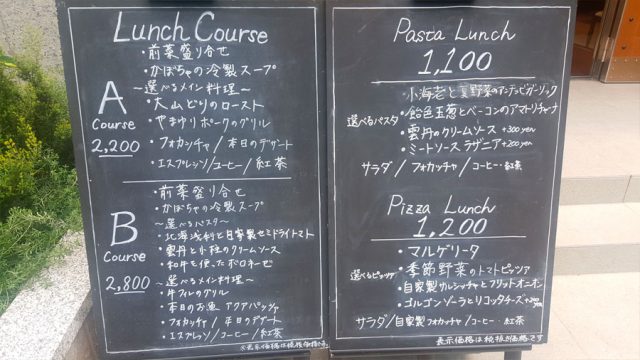 Lunch Course
A
Course
2,200
・前菜盛り合せ
・かぼちゃの冷製スープ
〜選べるメイン料理〜
・大山どりのロースト
・やまゆりポークのグリル
・フォカッチャ/本日のデザート
・エスプレッソ/コーヒー/紅茶
B
Course
2,800
・前菜盛り合せ
・かぼちゃの冷製スープ
〜選べるパスタ〜
・北海浅利と自家製セミドライトマト
・雲丹と小柱のクリームソース
・和牛を使ったボロネーゼ
〜選べるメイン料理〜
・牛フィレのグリル
・本日のお魚 アクアパッツァ
・フォカッチャ/本日のデザート
・エスプレッソ/コーヒー/紅茶
※表示価格は税抜価格です。
Pasta Lunch
1,100
選べるパスタ
・小海老と夏野菜のアンチョビガーリック
・飴色玉葱とベーコンのアマトリチャーナ
・雲丹のクリームソース +300yen
・ミートソースラザニア +200yen
サラダ/フォカッチャ/コーヒー・紅茶
Pizza Lunch
1,200
選べるピッツァ
・マルゲリータ
・季節野菜のトマトピッツァ
・自家製カルシッチャとフリットオニオン
・ゴルゴンゾーラとリコッタチーズ
サラダ/自家製フォカッチャ/コーヒー・紅茶
表示価格は税抜価格です